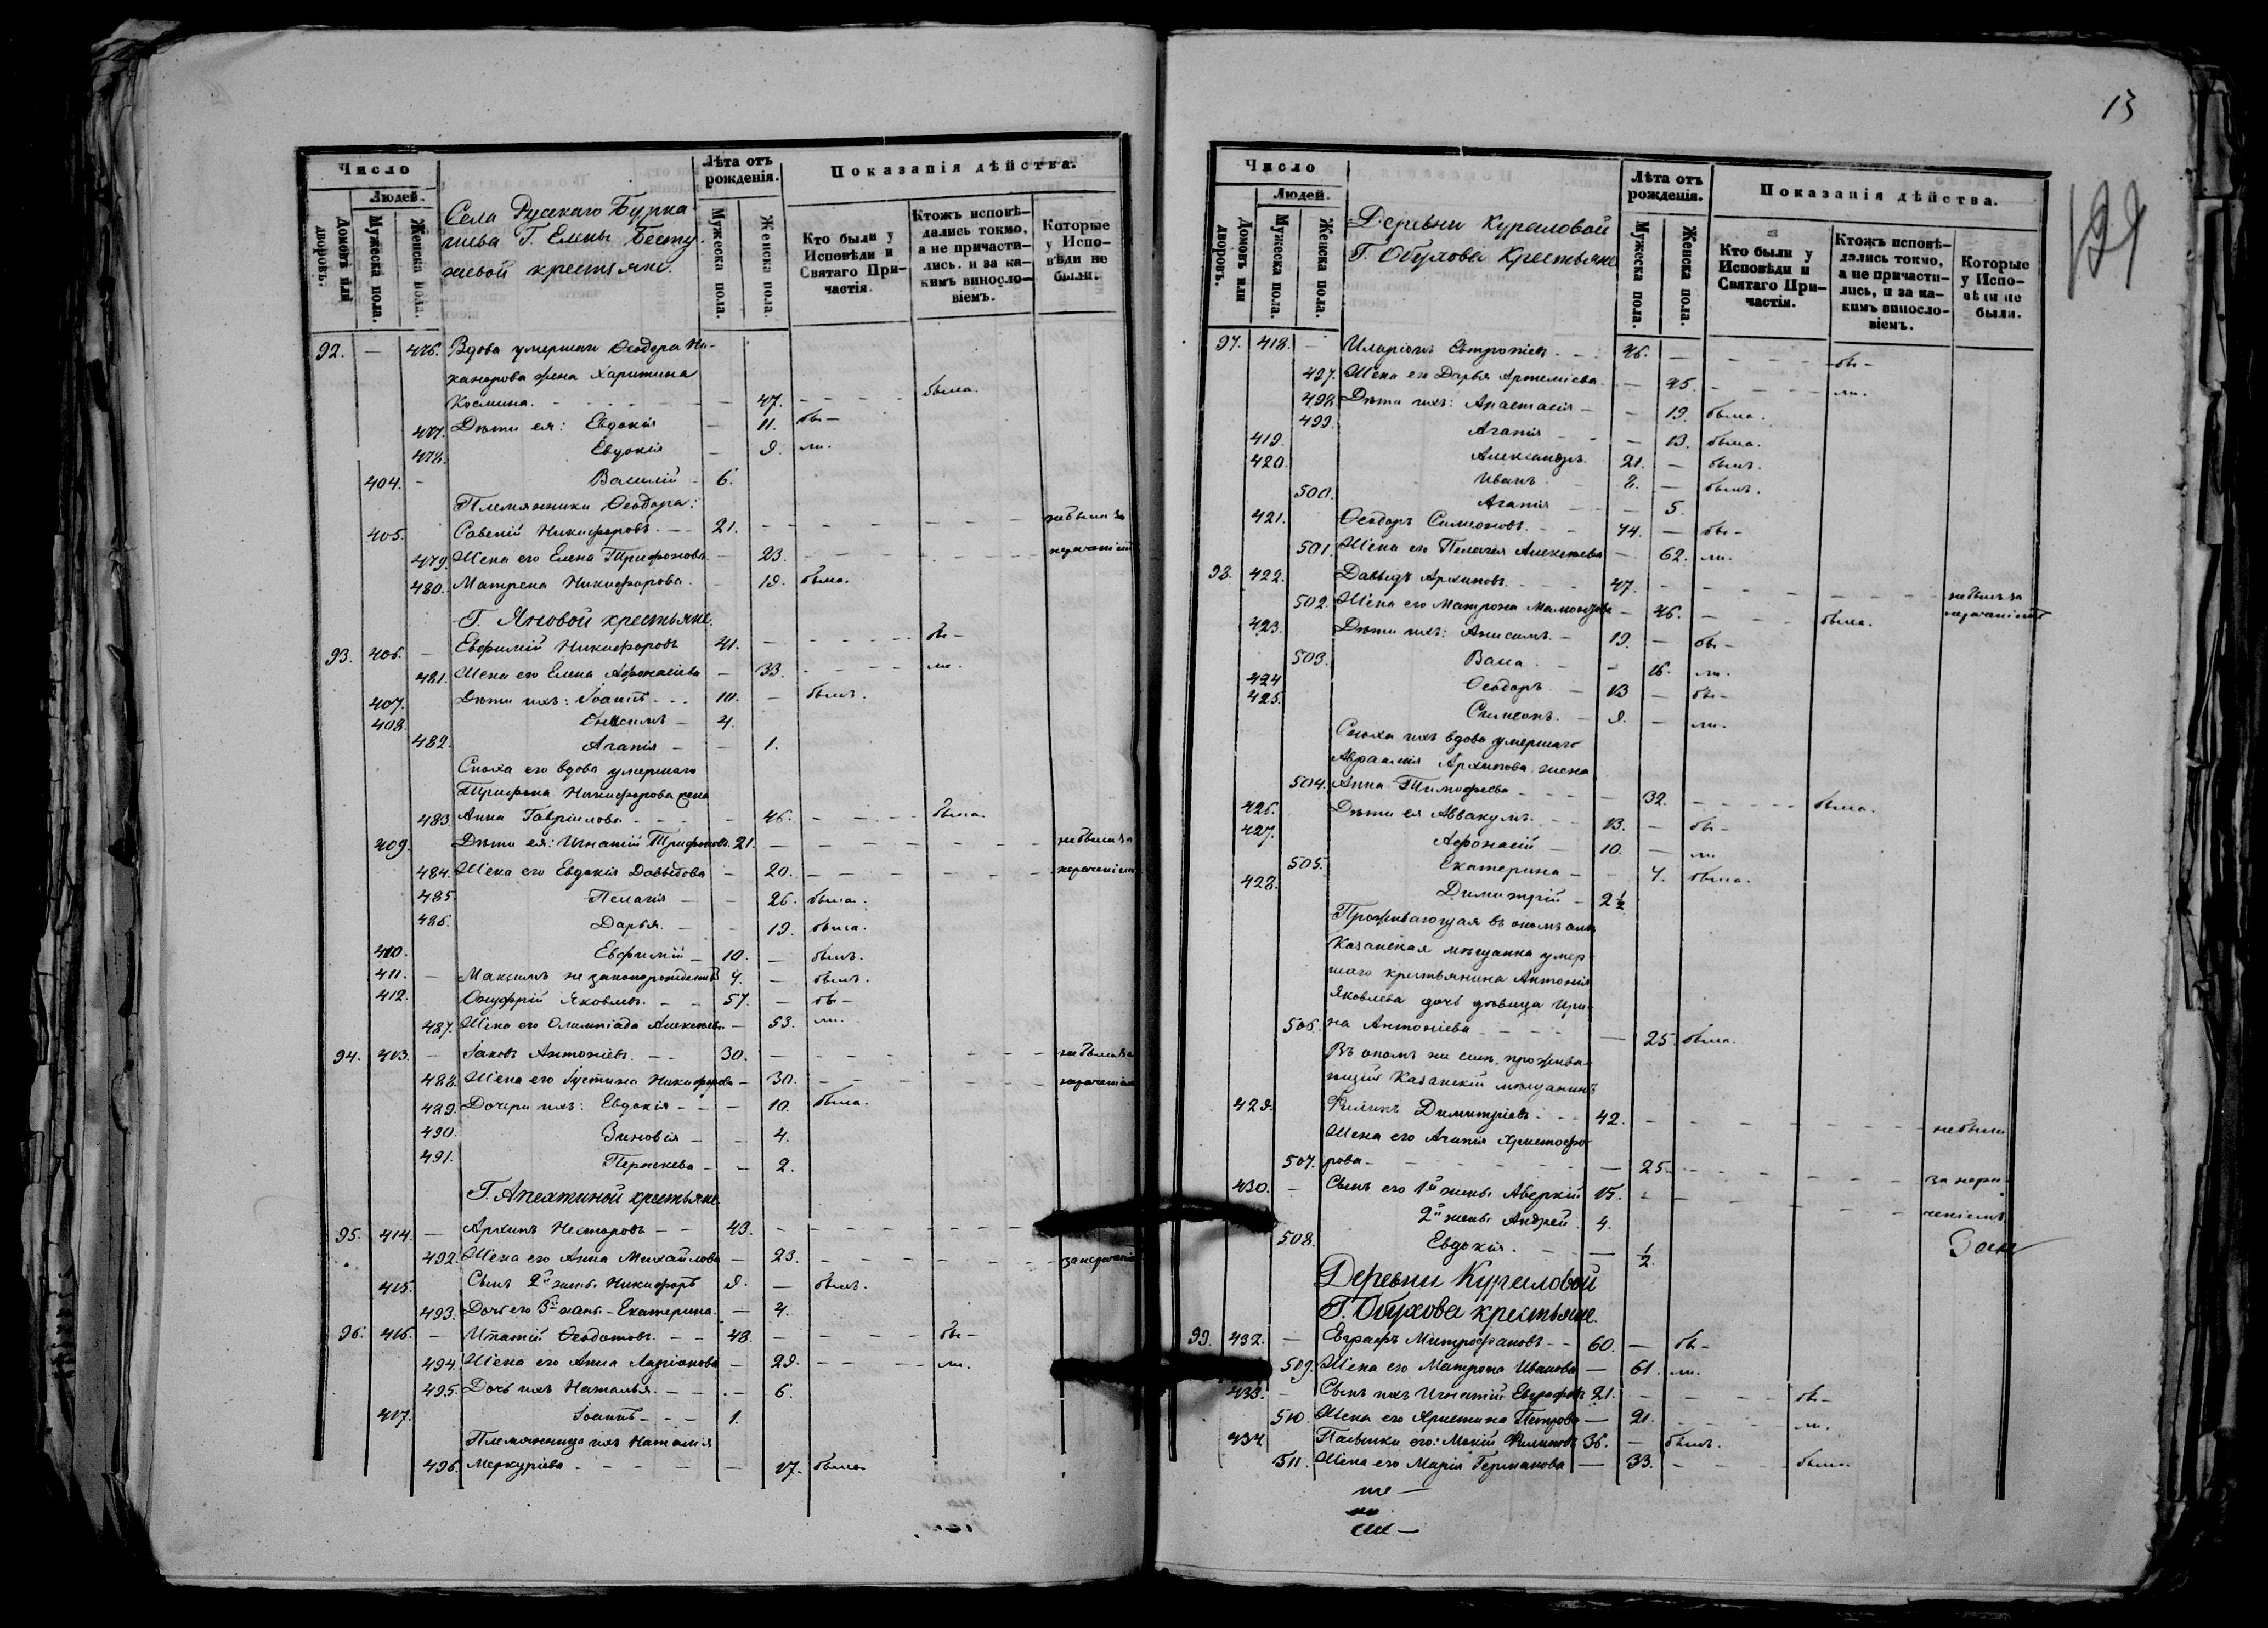 Число
Людей.
Домовъ или дворовъ.
Мужеска пола.
Женска пола.
Села Русскаго Бурна
шева Г. Елены Бесту-
жевой крестьяне.
Лѣта отъ рожденія.
Мужеска пола.
Женска пола.
Показанія дѣйства.
Кто были у Исповѣди и Святаго Причастія.
Ктожъ исповѣдались токмо, а не причастились. и за какимъ винословіемъ.
Которые у Исповѣди не были.
92. — 476. Вдова умершаго Ѳеодора Ни-
канорова жена Харитина
Космина. — 47. была.
477. Дѣти ея: Евдокія — 11. бы-
478. Евдокія — 9. ли.
404. — Василій 6.
Племянники Ѳеодора:
405. Савелій Никифоровъ. 21. не были за
479. Жена его Елена Трифонова — 23. нерачені
480. Матрена Никифорова. — 19. была.
Г. Яновой крестьяне.
93. 406. — Евфимій Никифоровъ 41. — бы-
481. Жена его Елена Афонасіева — 33. ли.
407. Дѣти ихъ: Іоаннъ 10. — былъ.
408. Онисимъ 4.
482. Агапія — 1.
Сноха его вдова умершаго
Трифона Никифорова жена
483. Анна Гавріилова — 46. была.
409. Дѣти ея: Игнатій Трифоновъ 21. — не были за
484. Жена его Евдокія Давыдова — 20. нерачені
485. Пелагія — 26. была.
486. Дарья. — 19. была.
410. Евфимій 10. — былъ.
411. — Максимъ незаконорожденный 7. — былъ.
412. Онуфрій Яковлевъ. 57. — бы-
487. Жена его Олимпіада Алексѣева — 53. ли.
94. 413. — Іаковъ Антоніевъ. 30. — не были за
488. Жена его Іустина Никифорова — 30. нерачені
489. Дочери ихъ: Евдокія — 10. была.
490. Зиновія — 4.
491. Параскева — 2.
Г. Апехтиной крестьяне.
95. 414. — Архипъ Несторовъ 43.
492. Жена его Анна Михайлова — 23. за нерачені
415. Сынъ 2й жены Никифоръ 9. — былъ.
493. Дочь его 3й жены Екатерина. — 4.
96. 416. — Ипатій Ѳеодотовъ. 48. — бы-
494. Жена его Анна Ларіонова — 29. ли.
495. Дочь ихъ Наталья. — 6.
417. Іоаннъ 1.
Племянница ихъ Наталія
496. Меркуріева — 17. была
13
Число
Людей.
Домовъ или дворовъ.
Мужеска пола.
Женска пола.
Деревни Кураловой
Г. Обухова Крестьяне
Лѣта отъ рожденія.
Мужеска пола.
Женска пола.
Показанія дѣйства.
Кто были у Исповѣди и Святаго Причастія.
Ктожъ исповѣдались токмо, а не причастились, и за какимъ винословіемъ.
Которые у Исповѣди не были.
97. 418. — Иларіонъ Евтропіевъ 46. — бы-
497. Жена его Дарья Артеміева. — 45. ли.
498. Дѣти ихъ: Анастасія — 19. была.
499. Агапія — 13. была.
419. Александръ 21. — былъ.
420. Иванъ 8. — былъ.
500. Агапія — 5.
421. Ѳеодоръ Симеоновъ. 74. — бы-
501. Жена его Пелагія Алексѣева — 62. ли.
98. 422. Давыдъ Архиповъ. 47. не былъ за
502. Жена его Матрона Мамонтова — 46. была. нерачені
423. Дѣти ихъ: Анисимъ. 19. — бы-
503. Васса — 16. ли.
424 Ѳеодоръ. 13 — бы-
425. Симеонъ. 9. — ли.
Сноха ихъ вдова умершаго
Авраамія Архипова жена
504. Анна Тимофеева — 32. была.
426. Дѣти ея Аввакумъ. 13. — бы-
427. Афонасій 10. — ли
505. Екатерина — 7. была.
428. Димитрій 2 ½
Проживающая въ ономъ селѣ
Казанская мѣщанка умер
шаго крестьянина Антонія
Яковлева дочь дѣвица Ири-
506. на Антоніева — 25. была.
Въ ономъ же селѣ прожива-
ющій Казанскій мѣщанинъ
429. Филипъ Димитріевъ 42. не были
Жена его Агапія Христофо
507. рова — 25. за нера-
430. — Сынъ его 1й жены Аверкій 15. ченіемъ
2й жены Андрей 4.
508. Евдокія. — ½
Деревни Кураловой
Г. Обухова крестьяне.
99. 432. — Евграфъ Митрофановъ 60. — бы-
509. Жена его Матрона Иванова — 61. ли.
433. — Сынъ ихъ Игнатій Евграфовъ 21. бы-
510. Жена его Христина Петрова — 21. ли.
434 Пасынки его: Мокій Филиповъ 36. — былъ.
511. Жена его Марія Германова — 33. была